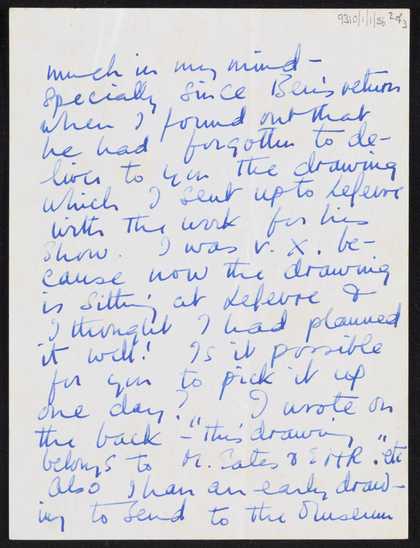 9310/1/1/56 2 of 3
much in my mind –
specially since Ben's return
when I found out that
he had forgotten to de-
liver to you the drawing
which I sent up to Lefevre
with the work for his
show. I was v. X. be-
cause now the drawing
is sitting at Lefevre &
I thought I had planned
it well! Is it possible
for you to pick it up
one day? I wrote on
the back – "this drawing
belongs to M. Gates &
Also I have an early draw-
ing to send to the Museum